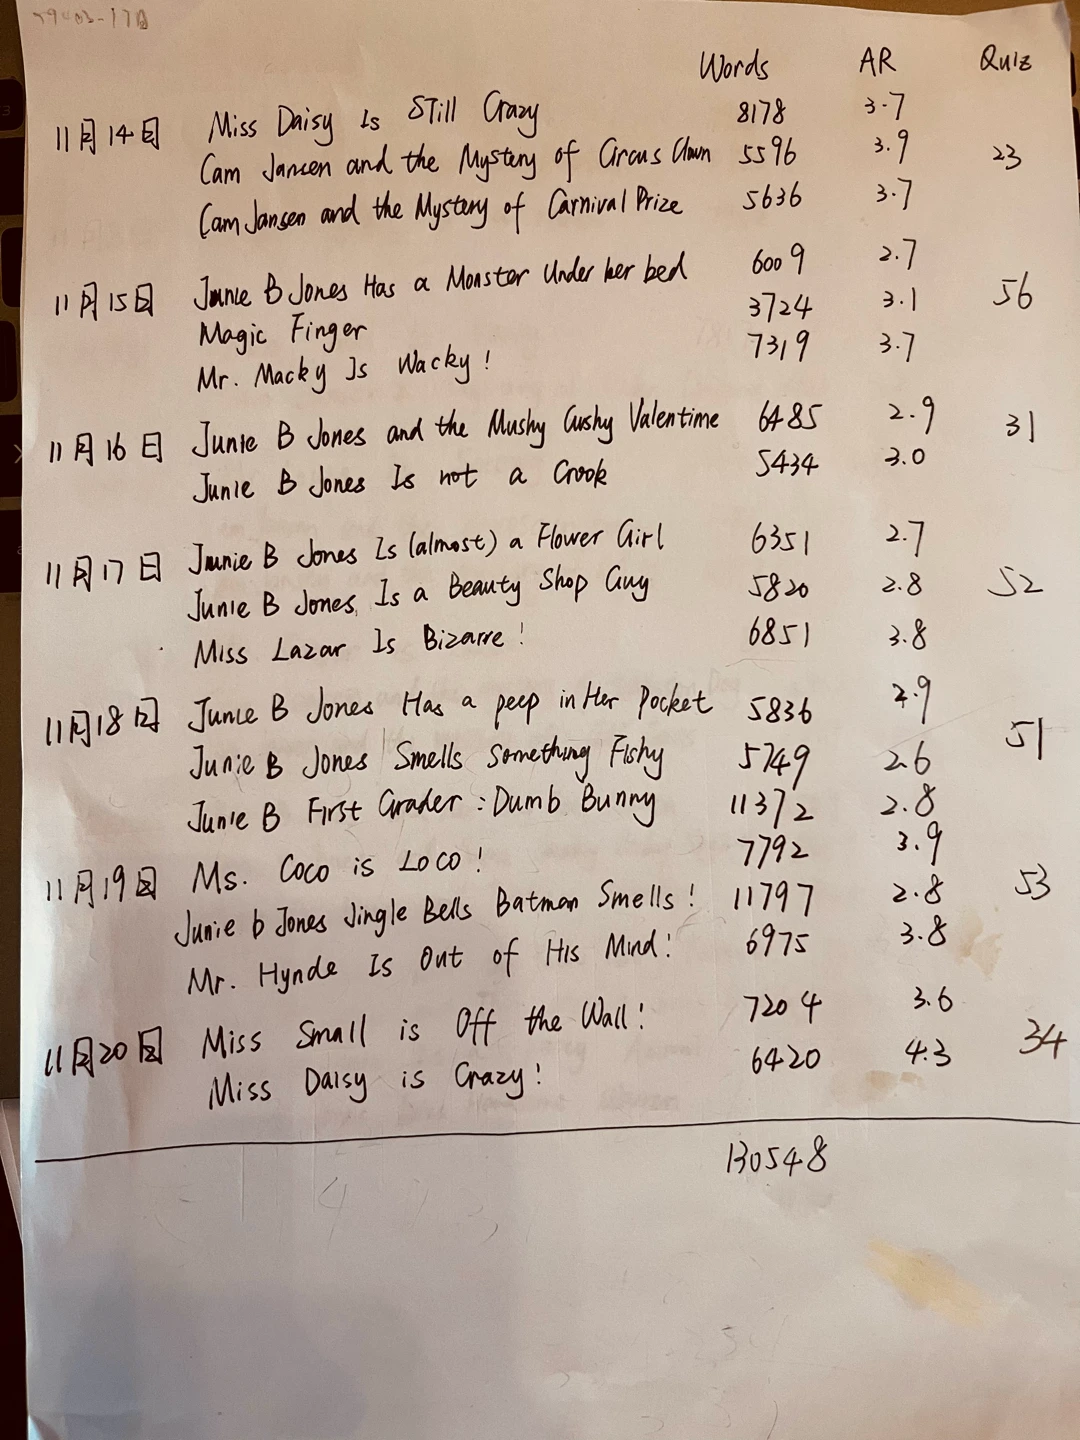 Words AR Quiz
11月14日 Miss Daisy Is Still Crazy 8178 3.7
Cam Jansen and the Mystery of Circus Clown 5596 3.9 23
Cam Jansen and the Mystery of Carnival Prize 5636 3.7
11月15日 Junie B Jones Has a Monster Under her bed 6009 2.7
Magic Finger 3724 3.1 56
Mr. Macky Is Wacky! 7319 3.7
11月16日 Junie B Jones and the Mushy Gushy Valentime 6485 2.9 31
Junie B Jones Is not a Crook 5434 3.0
11月17日 Junie B Jones Is (almost) a Flower Girl 6351 2.7
Junie B Jones Is a Beauty Shop Guy 5820 2.8 52
Miss Lazar Is Bizarre! 6851 3.8
11月18日 Junie B Jones Has a peep in Her Pocket 5836 2.9
Junie B Jones Smells Something Fishy 5749 2.6 51
Junie B First Grader: Dumb Bunny 11372 2.8
11月19日 Ms. Coco is Loco! 7792 3.9
Junie b Jones Jingle Bells Batman Smells! 11797 2.8 53
Mr. Hynde Is Out of His Mind! 6975 3.8
11月20日 Miss Small is Off the Wall! 7204 3.6
Miss Daisy is Crazy! 6420 4.3 34
130548